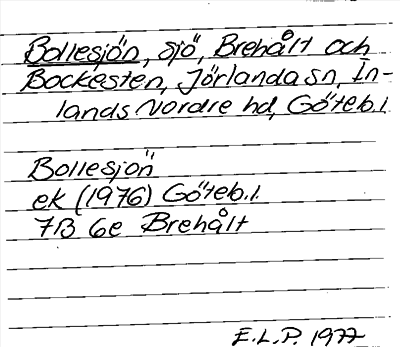 Bollesjön, sjö, Brehålt och
Bockesten, Jörlanda sn, In-
lands Nordre hd, Göteb.l.
Bollesjön
ek (1976) Göteb.l.
7B 6e Brehålt
E.L.P. 1977